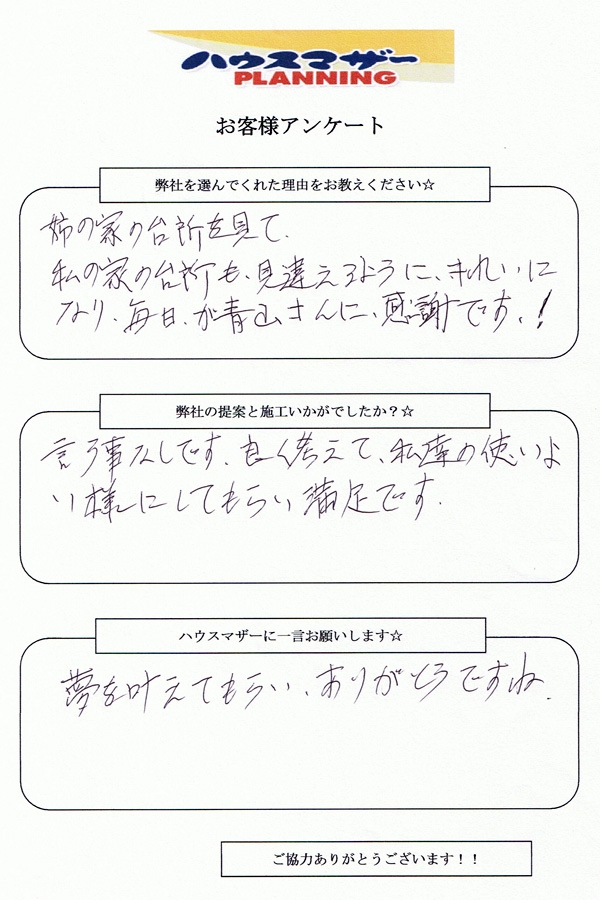 ハウスマザー
PLANNING
お客様アンケート
弊社を選んでくれた理由をお教えください☆
姉の家の台所を見て、
私の家の台所も、見違えるように、きれいに
なり、毎日、が青山さんに、感謝です、!
弊社の提案と施工いかがでしたか?☆
言う事なしです、良く考えて、私達の使いよ
い様にしてもらい満足です.
ハウスマザーに一言お願いします☆
夢を叶えてもらい、ありがとうですね.
ご協力ありがとうございます!!